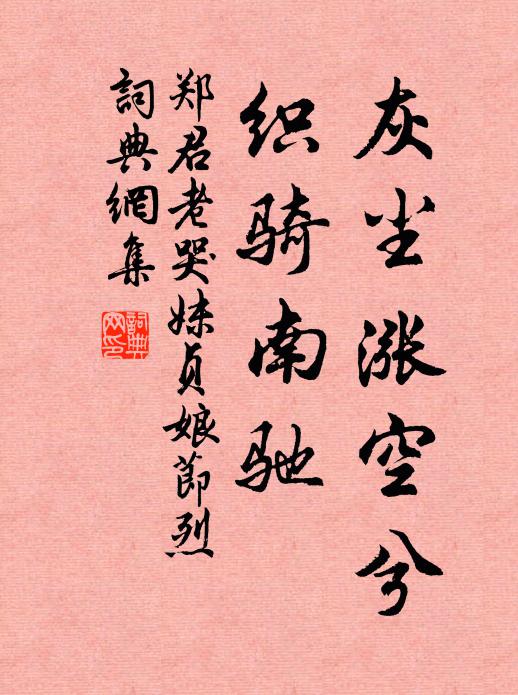 灰尘漲空兮
织骑南驰
郑君老哭妹贞娘節烈
詞典網集
詞典網印